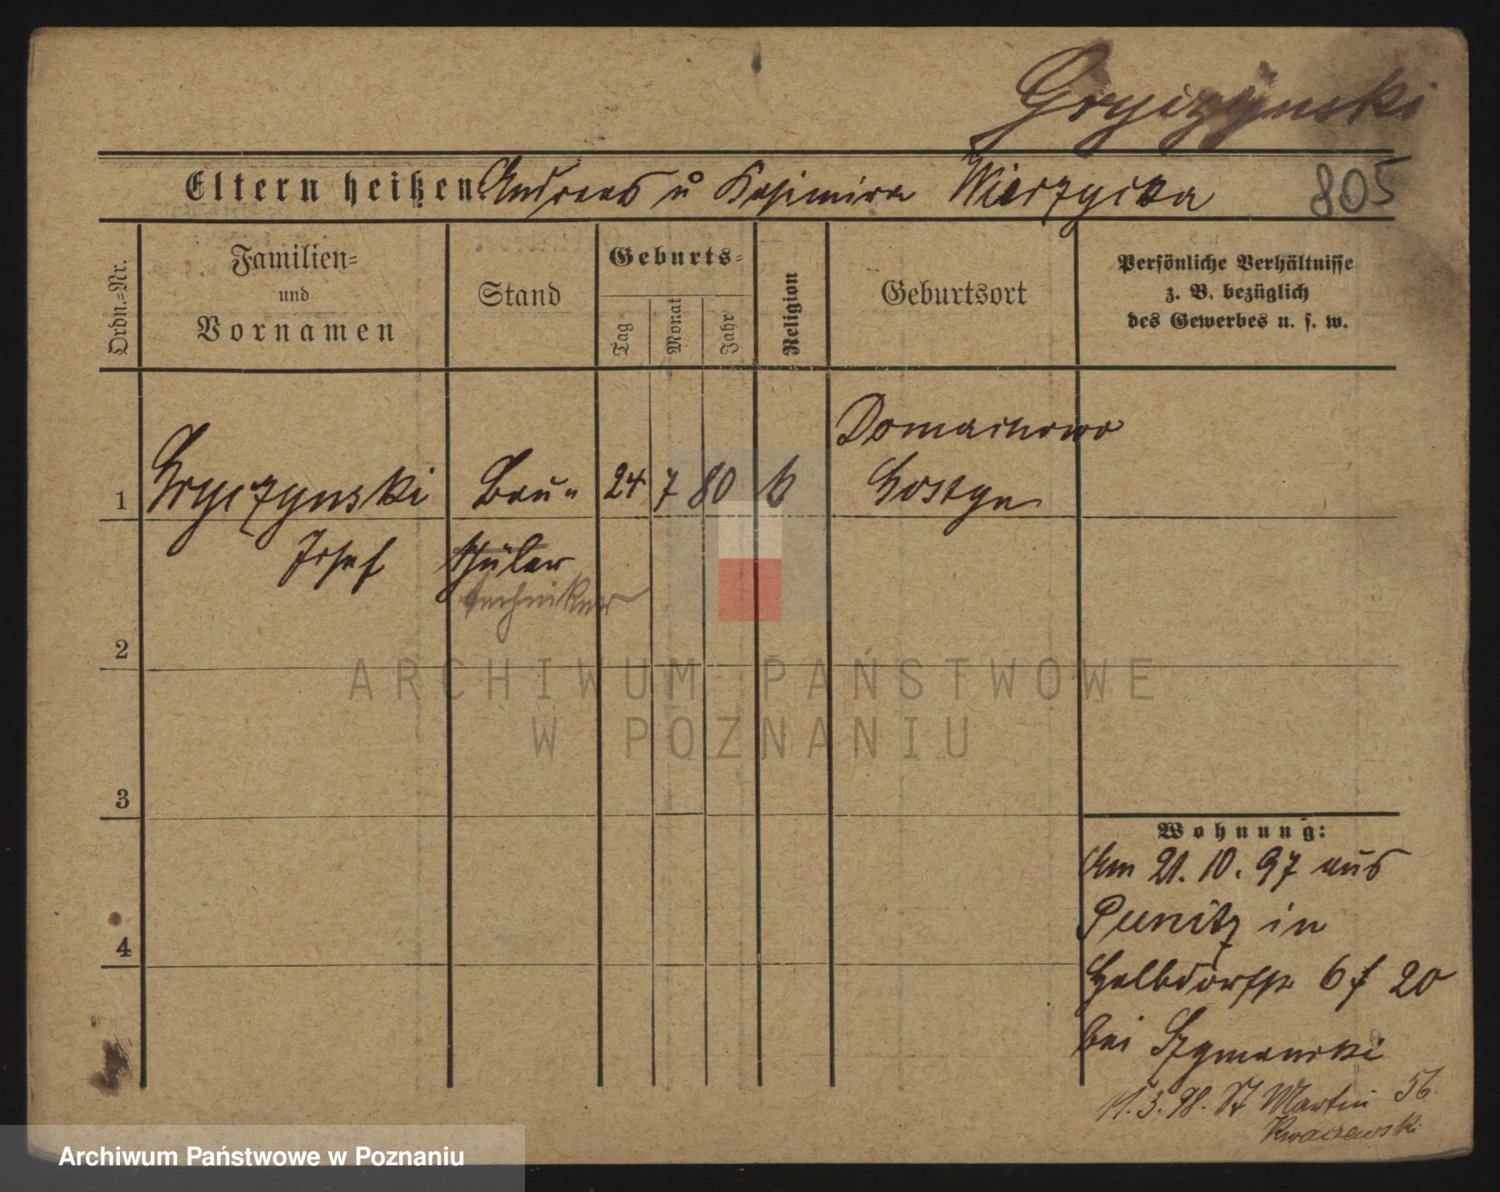 Gryczynski
Eltern heißen Andreas u Kasimira Wierzycka 805
Ordn.=Nr.
Familien=
und
Vornamen
Stand
Geburts=
Tag
Monat
Jahr
Religion
Geburtsort
Persönliche Verhältnisse
z. B. bezüglich
des Gewerbes u. s. w.
1 Gryczynski Bau= 24 7 80 k Domachowo
Gostyn
Josef schüler
techniker
2
3
4
Wohnung:
Am 21.10.97 aus
Punitz in
Halbdorfstr 6 f 20
bei Szymanski
11.3.98. St Martin 56.
Kwaczewski
ARCHIWUM PAŃSTWOWE
W POZNANIU
Archiwum Państwowe w Poznaniu